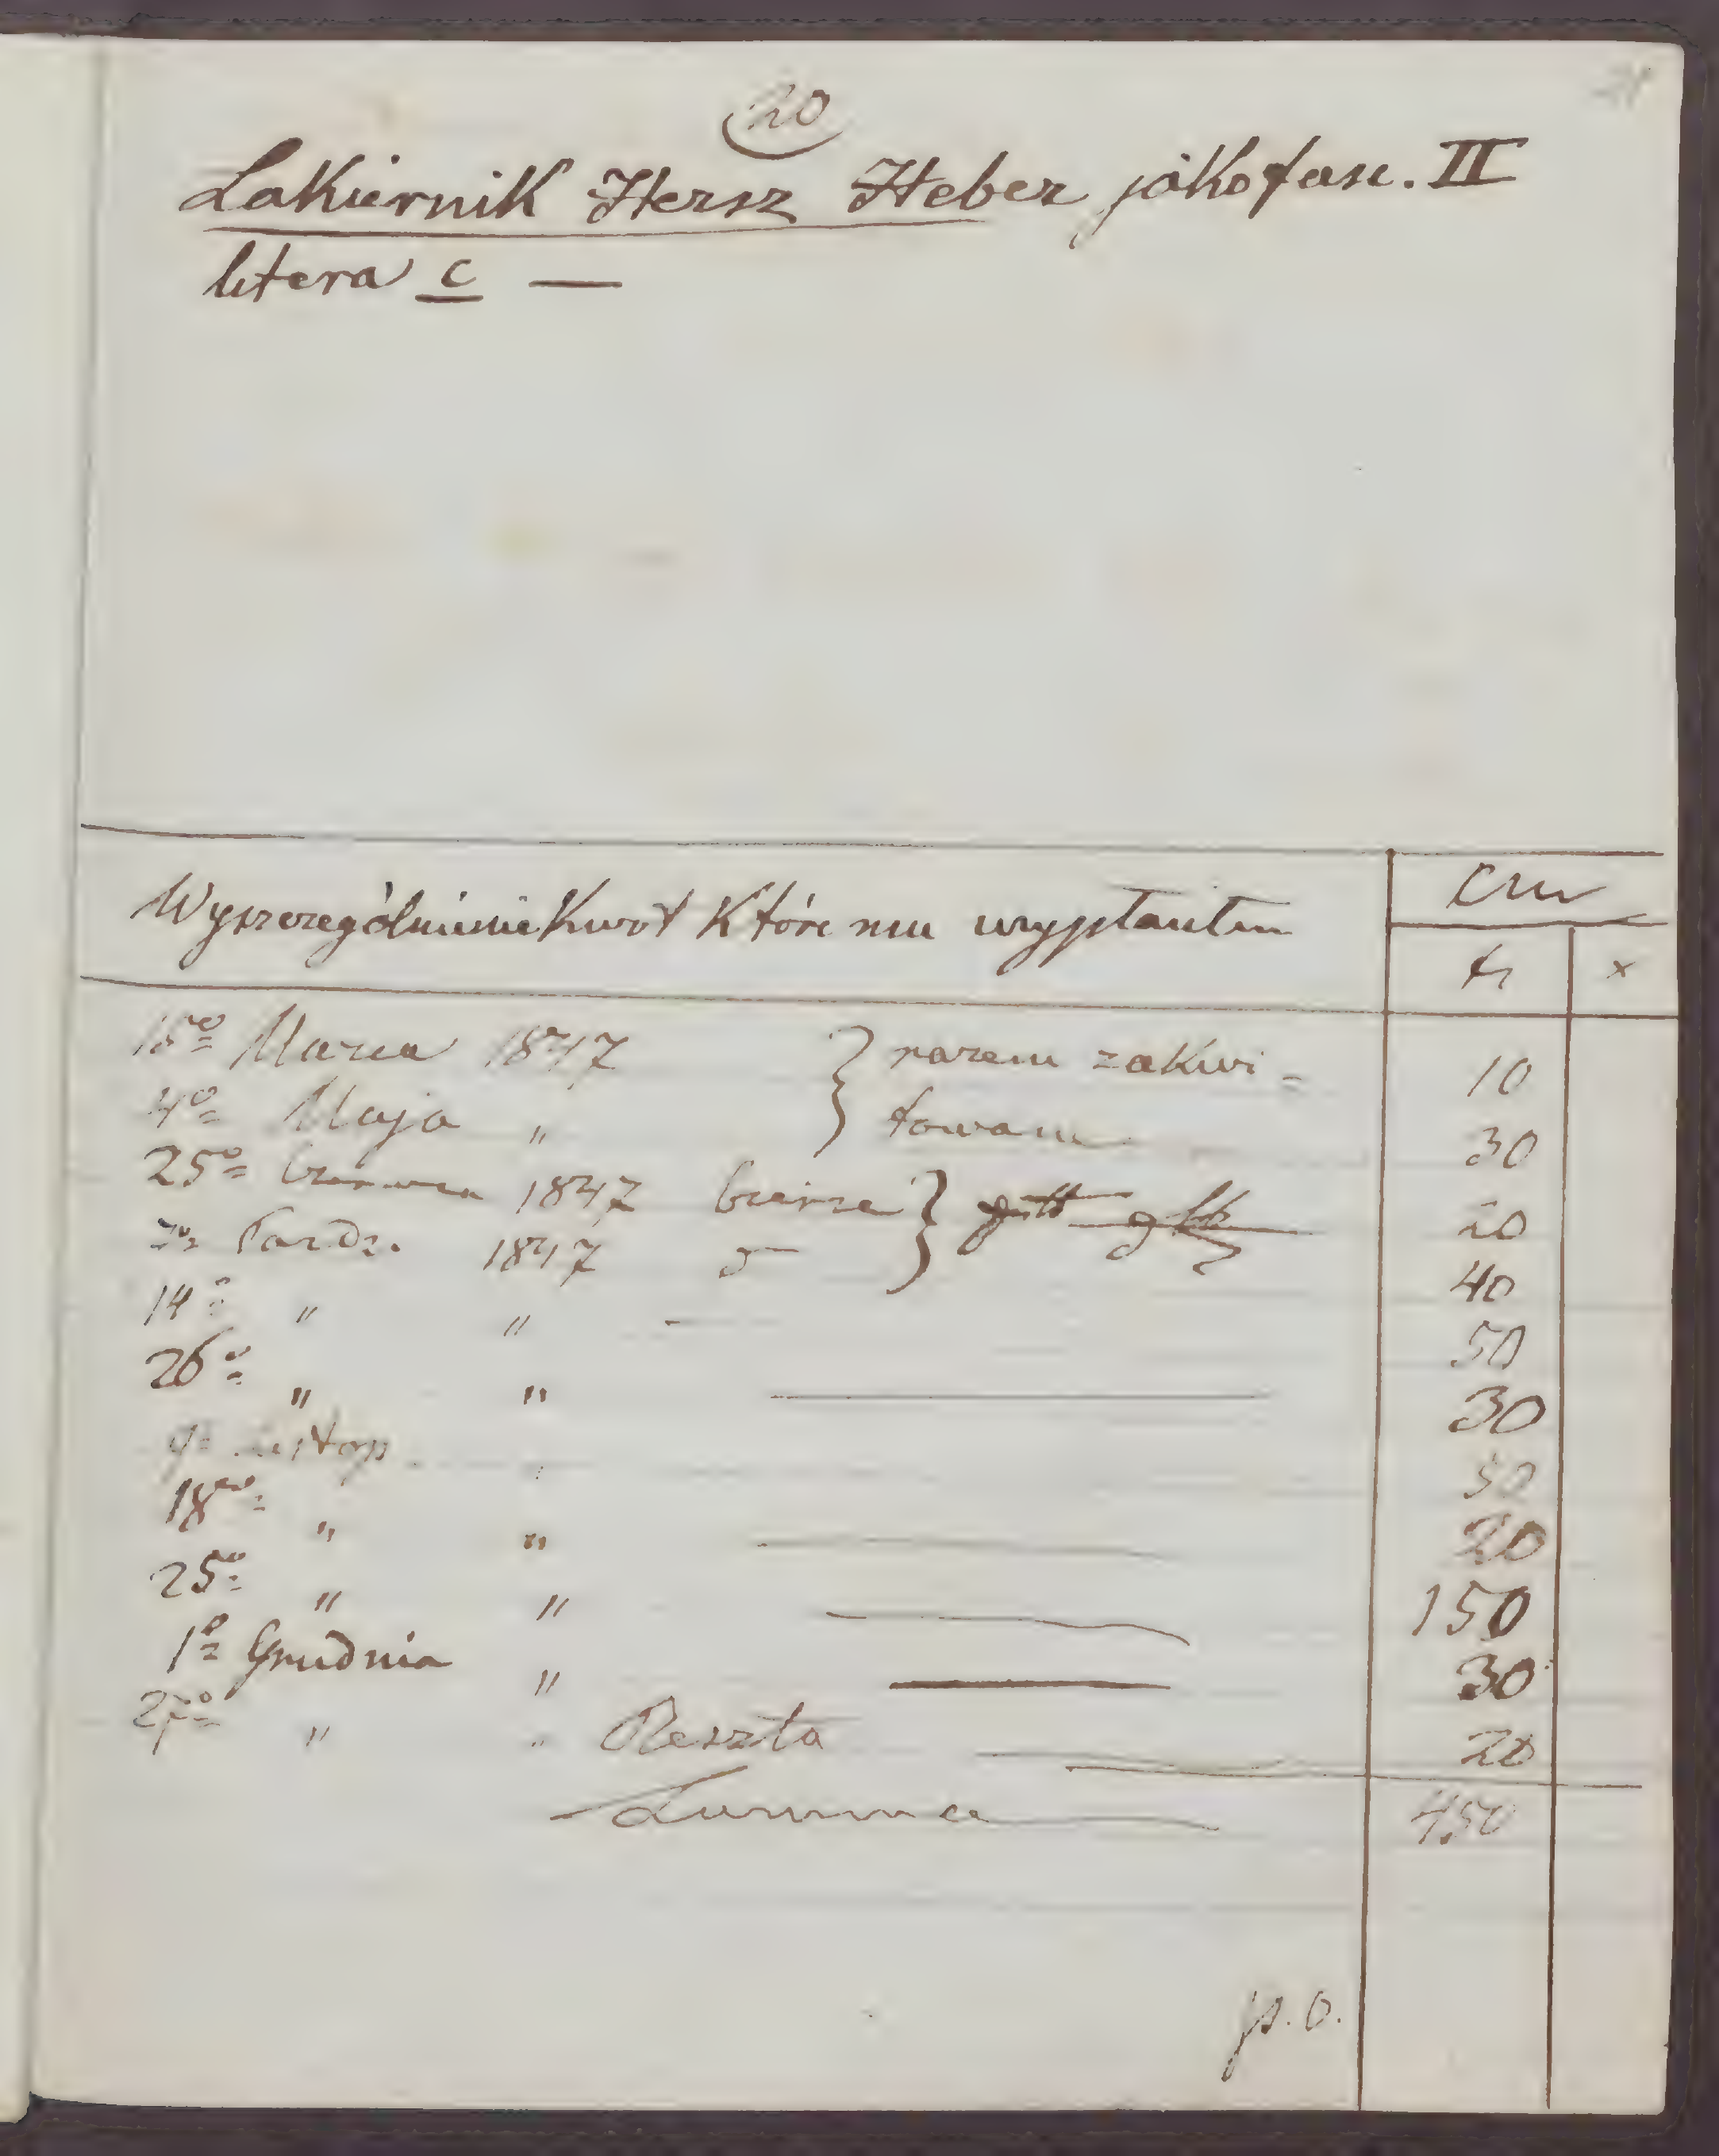 20
Lakiernik Hersz Heber jako fasc. II
litera c —
Wyszczególnienie Kwot Które mu wypłaciłem
CM
fr x
18º Marca 1847 } razem zakwi- 10
4º Maja " towane 30
25º Czerwca 1847 20
7º Paźdz. 1847 40
14º " " — 50
26º " " — 30
9º Listop. " 50
18º " " — 20
25º " " — 150
1º Grudnia " — 30
27º " " Reszta — 20
Summa 450
p. o.